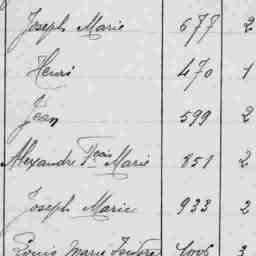 Joseph Marie 677 2
Henri 470 1
Jean 599 2
Alexandre Fçois Marie 851 2
Joseph Marie 933 2
Louis Marie 3